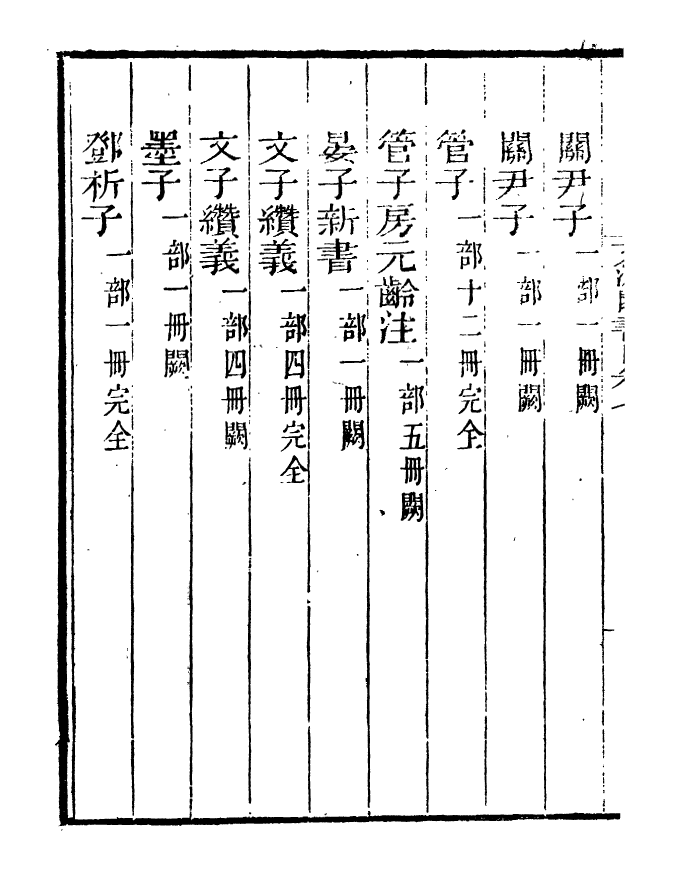 關尹子一部一冊闕
關尹子一部一冊闕
管子一部十二冊完全
管子房元齡注一部五冊闕
晏子新書一部一冊闕
文子纘義一部四冊完全
文子纘義一部四冊闕
墨子一部一冊闕
鄧析子一部一冊完全